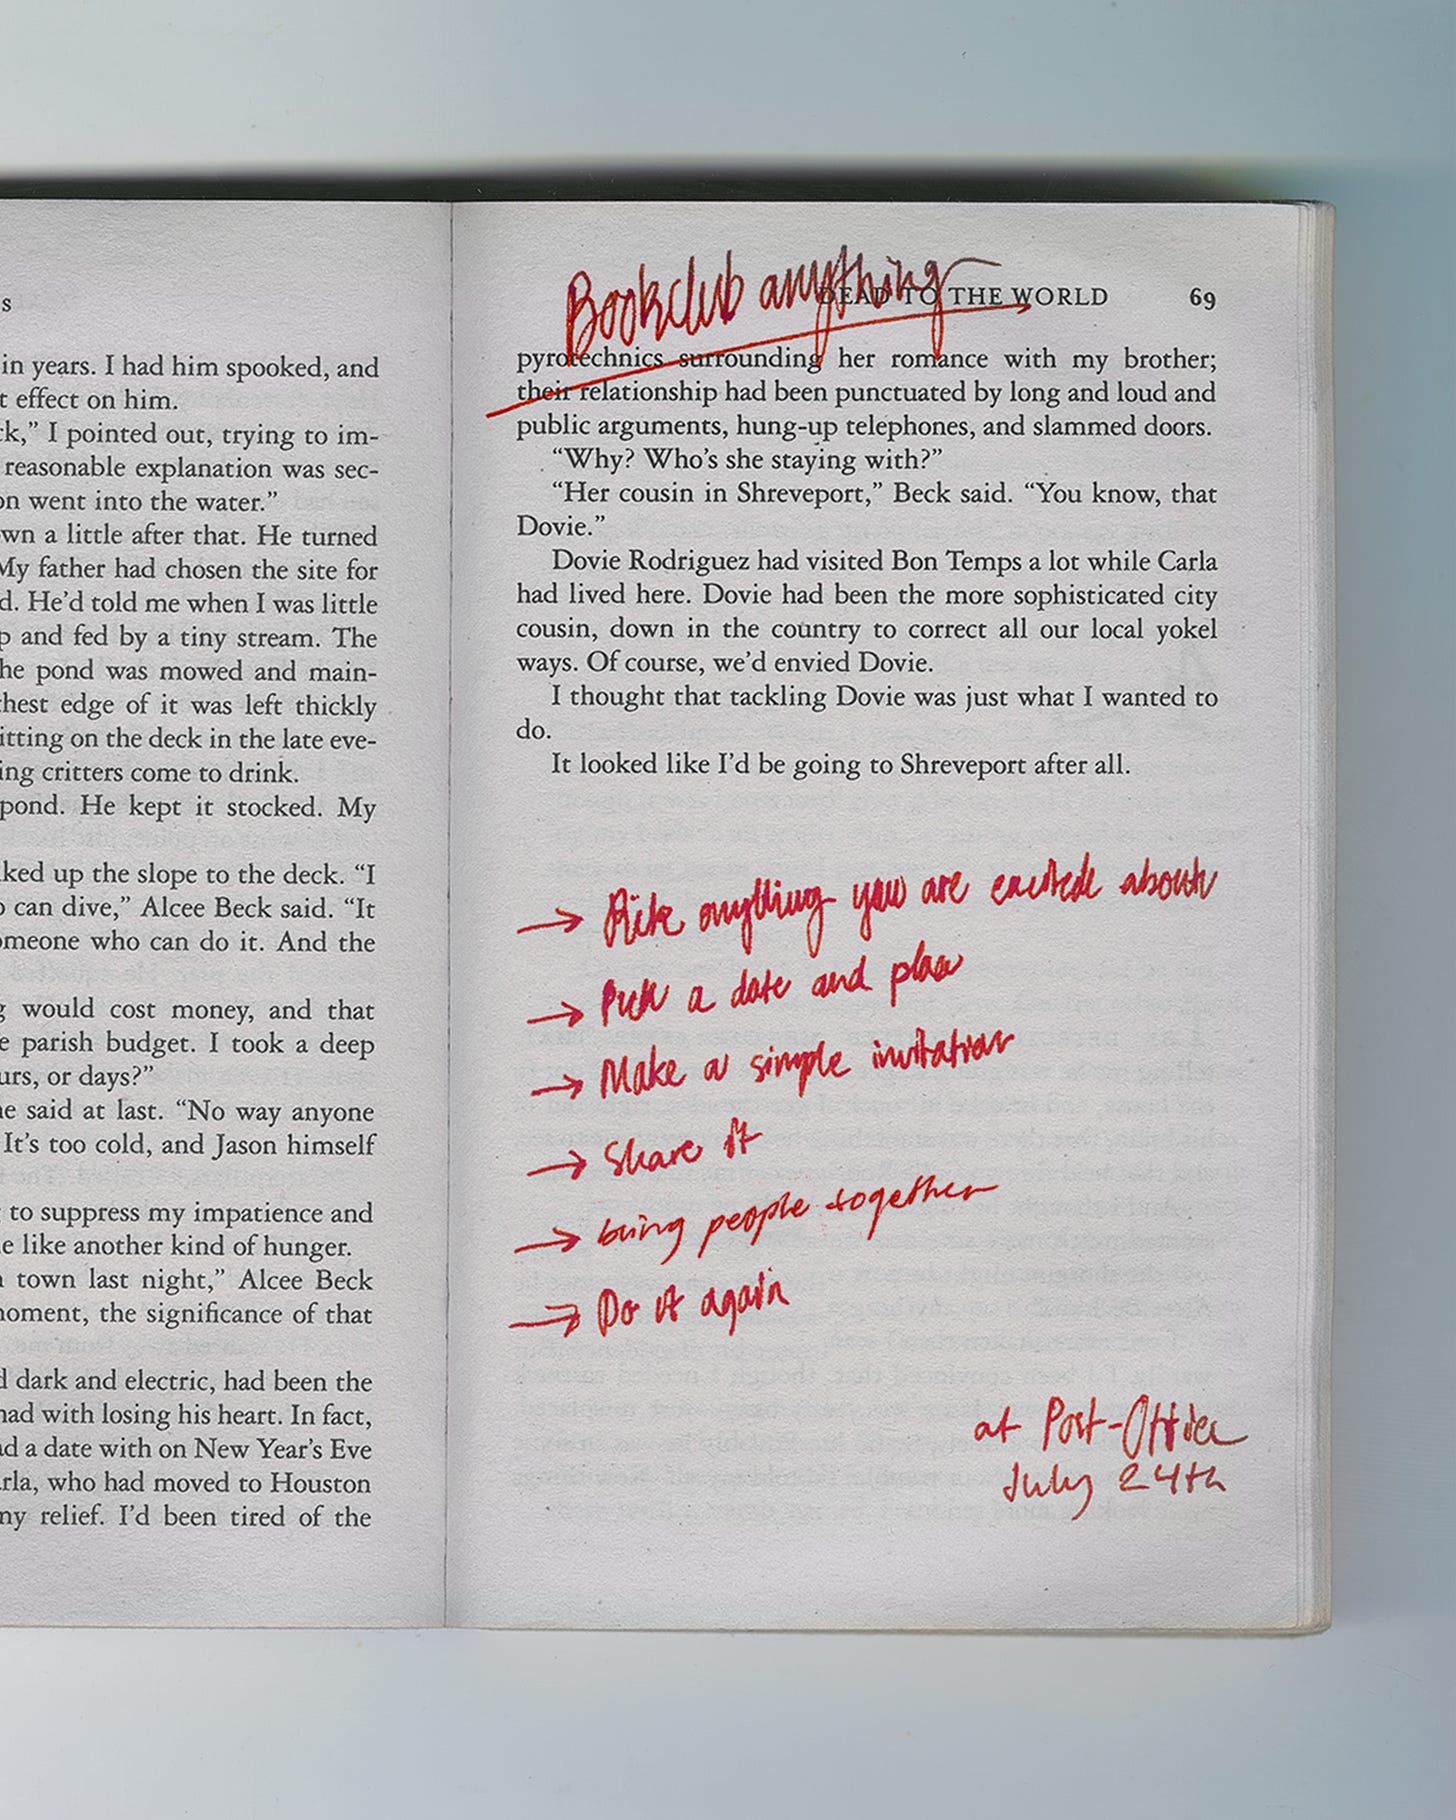 s
in years. I had him spooked, and
t effect on him.
ck,” I pointed out, trying to im-
reasonable explanation was sec-
on went into the water.”
wn a little after that. He turned
My father had chosen the site for
d. He’d told me when I was little
p and fed by a tiny stream. The
he pond was mowed and main-
hest edge of it was left thickly
itting on the deck in the late eve-
ing critters come to drink.
pond. He kept it stocked. My
ked up the slope to the deck. “I
o can dive,” Alcee Beck said. “It
omeone who can do it. And the
g would cost money, and that
e parish budget. I took a deep
urs, or days?”
ne said at last. “No way anyone
It’s too cold, and Jason himself
to suppress my impatience and
e like another kind of hunger.
n town last night,” Alcee Beck
moment, the significance of that
d dark and electric, had been the
had with losing his heart. In fact,
ad a date with on New Year’s Eve
arla, who had moved to Houston
my relief. I’d been tired of the
Bookclub anything
DEAD TO THE WORLD 69
pyrotechnics surrounding her romance with my brother;
their relationship had been punctuated by long and loud and
public arguments, hung-up telephones, and slammed doors.
“Why? Who’s she staying with?”
“Her cousin in Shreveport,” Beck said. “You know, that
Dovie.”
Dovie Rodriguez had visited Bon Temps a lot while Carla
had lived here. Dovie had been the more sophisticated city
cousin, down in the country to correct all our local yokel
ways. Of course, we’d envied Dovie.
I thought that tackling Dovie was just what I wanted to
do.
It looked like I’d be going to Shreveport after all.
→ anything you are about
→ Pick a date and place
→ Make a simple invitation
→ Share it
→ bring people together
→ Do it again
at Post-Office
July 24th